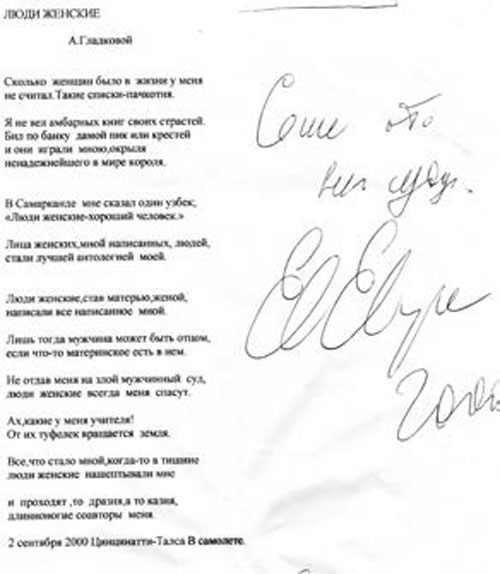 ЛЮДИ ЖЕНСКИЕ
А.Гладковой
Сколько женщин было в жизни у меня
не считал.Такие списки-пачкотня.
Я не вел амбарных книг своих страстей.
Бил по банку дамой пик или крестей
и они играли мною,окрыля
ненадежнейшего в мире короля.
В Самарканде мне сказал один узбек;
«Люди женские-хороший человек.»
Лица женских,мной написанных, людей,
стали лучшей антологией моей.
Люди женские,став матерью,женой,
написали все написанное мной.
Лишь тогда мужчина может быть отцом,
если что-то материнское есть в нем.
Не отдав меня на злой мужчинный суд,
люди женские всегда меня спасут.
Ах,какие у меня учителя!
От их туфелек вращается земля.
Все,что стало мной,когда-то в тишине
люди женские нашептывали мне
и проходят ,то дразня,а то казня,
длинноногие соавторы меня.
2 сентября 2000 Цинцинатти-Талса В самолете.
Саше от